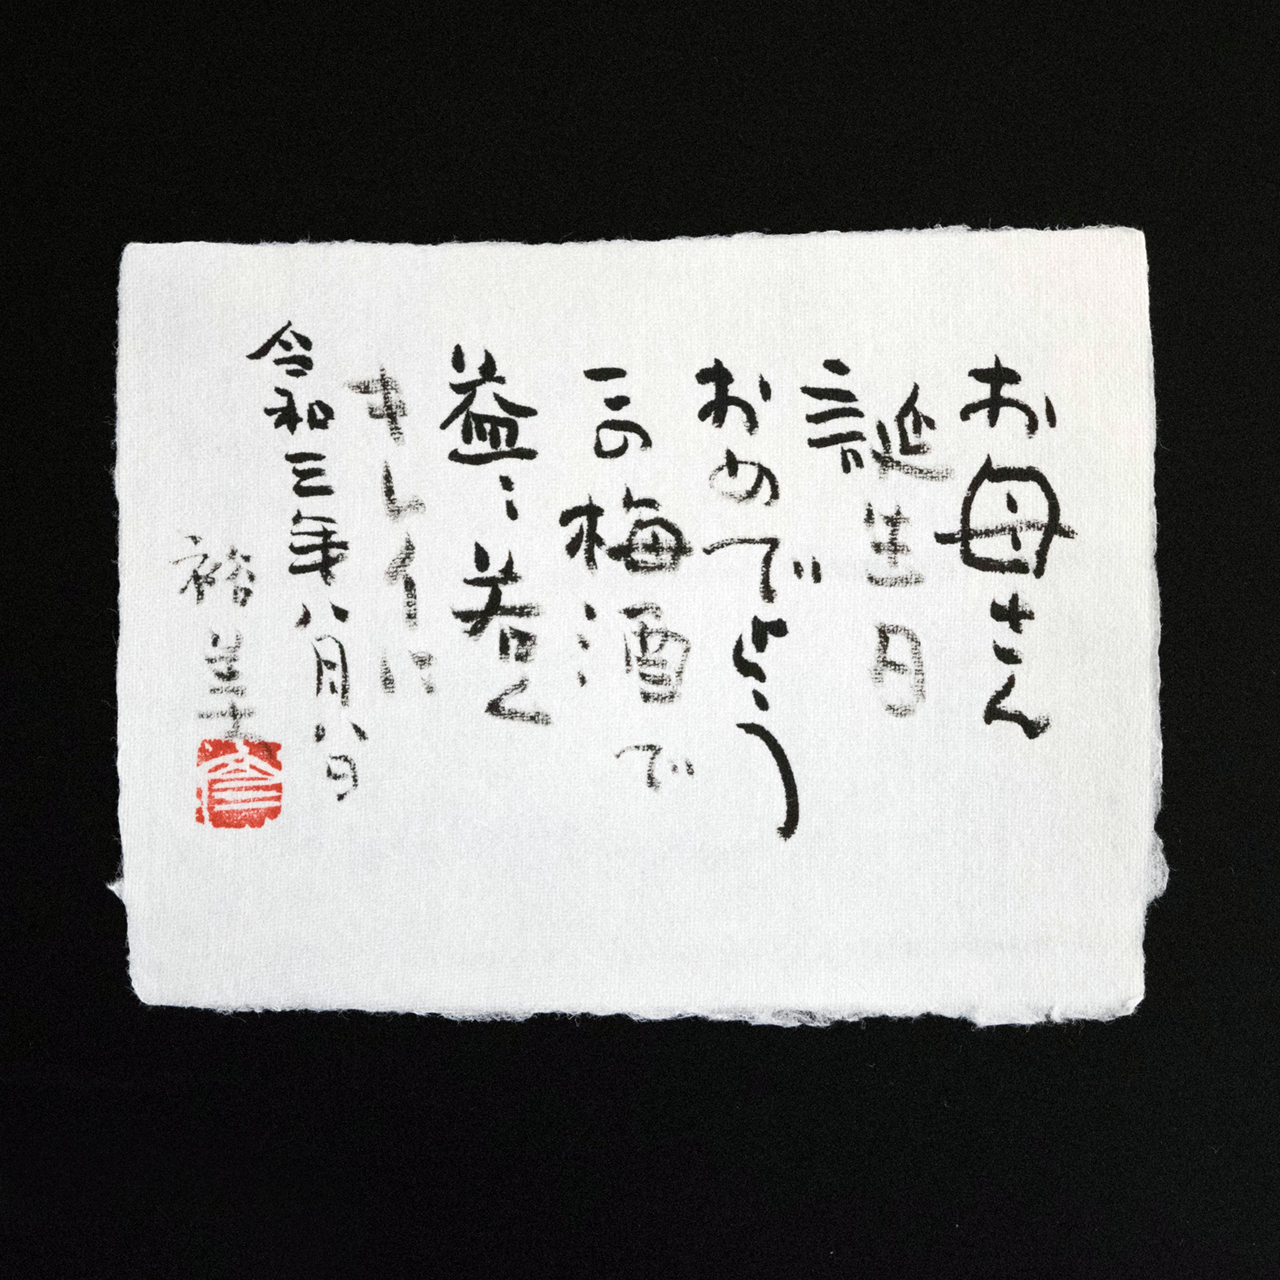 お母さん
誕生日
おめでとう
この梅酒で
益々若く
キレイに
令和三年八月八日
裕